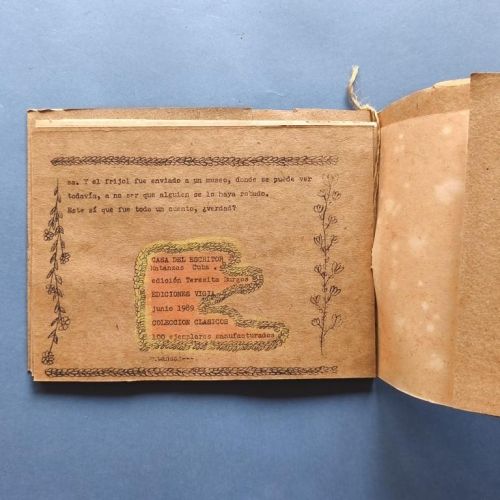 sa. Y el frijol fue enviado a un museo, donde se puede ver
todavía, a no ser que alguien se lo haya robado.
Este sí que fue todo un cuento, ¿verdad?
CASA DEL ESCRITOR
Matanzas Cuba.
edición Teresita Burgos
EDICIONES VIGIA
junio 1989
COLECCION CLASICOS
100 ejemplares manufacturados